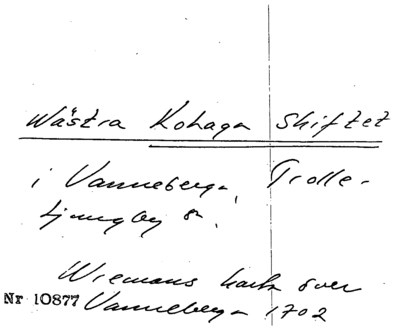 Wästra Kohaga Skiftet
i Vanneberga, Trolle-
Ljungby sn.
Wiemans karta över
Nr 10877 Vanneberga 1702